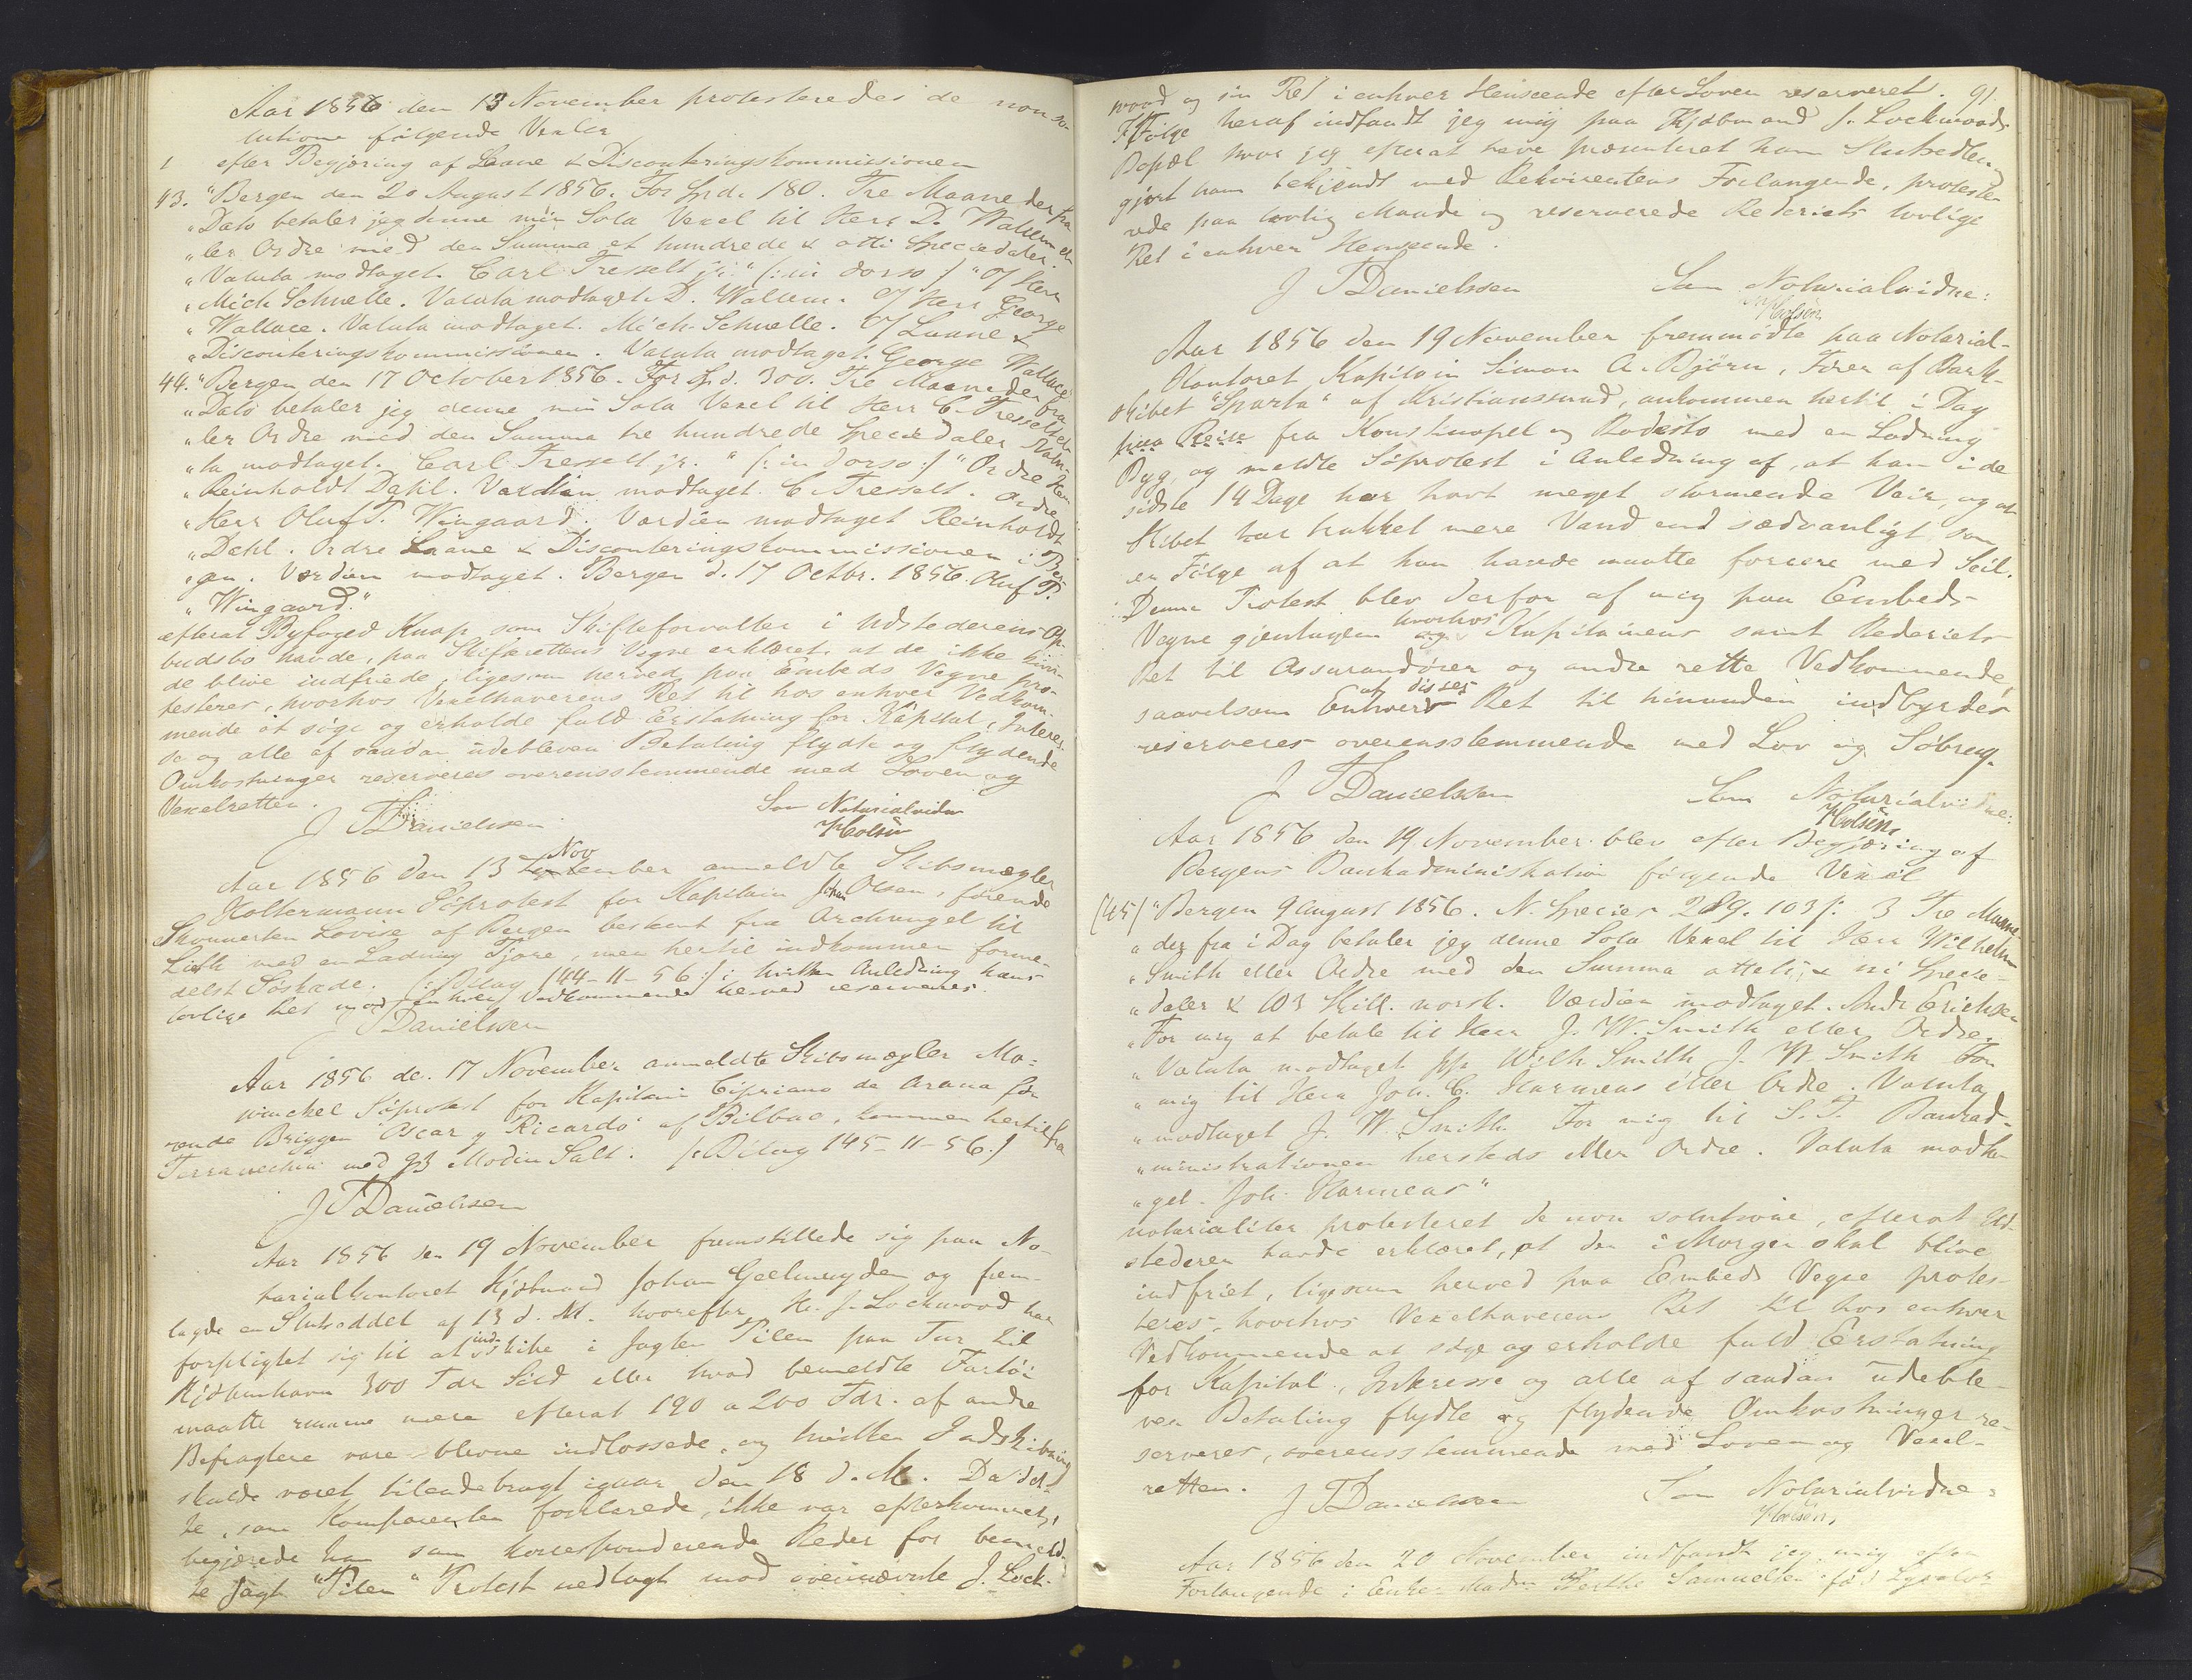 Aar 1856 den 13 November protesteredes de non so-
lutione følgende Vexler
1 efter Begjæring af Laane & Disconteringskommissionen
43. "Bergen den 20 August 1856. For Spd. 180. Tre Maaneder fra
"Dato betaler jeg denne min Sola Vexel til Herr D. Wallem el-
"ler Ordre med den Summa et hundrede & otti Speciedaler.
"Valuta modtaget. Carl Tresselt jr." (: in dorso :) "O/ Herr
"Mich Schnelle. Valuta modtaget. D. Wallem. O/ Herr George
"Wallace. Valuta modtaget. Mich. Schnelle. O/ Laane &
"Disconteringskommissionen. Valuta modtaget. George Wallace
44. "Bergen den 17 October 1856. For Spd. 300. Tre Maaneder fra
"Dato betaler jeg denne min Sola Vexel til Herr C. Tresselt el-
"ler Ordre med den Summa tre hundrede Speciedaler Valu-
"ta modtaget. Carl Tresselt jr. " (: in dorso :) "Ordre Herr
"Reinholdt Dahl. Værdien modtaget. C. Tresselt. Ordre
"Herr Oluf T. Wingaard. Værdien modtaget Reinholdt
"Dahl. Ordre Laane & Disconteringskommissionen i Ber-
"gen. Værdien modtaget. Bergen d. 17 Octbr. 1856. Oluf T.
"Wingaard."
efterat Byfoged Knap som Skifteforvalter i Udstederens Op-
budsbo havde, paa Skifterettens Vegne erklæret, at de ikke kun-
de blive indfriede, ligesom herved paa Embeds Vegne pro-
testeres, hvorhos Vexelhaverens Ret til hos enhver Vedkom-
mende at søge og erholde fuld Erstatning for Kapital, Interes-
se og alle af saadan udebleven Betaling flydte og flydende
Omkostninger reserveres overensstemmende med Loven og
Vexelretten.
J T Danielssen Som Notarialvidne
Holsen
Aar 1856 den 13 Nov ember anmeldte Skibsmægler
Koltermann Søprotest for Kapitain Johan Olsen, førende
Skonnerten Lovise af Bergen bestemt fra Archangel til
Leith med en Ladning Tjære, men hertil indkommen forme-
delst Søskade. (: Bilag 144-11-56 :) i hvilken Anledning hans
lovlige Ret mod enhver Vedkommende herved reserveres.
J T Danielssen
Aar 1856 de. 17 November anmeldte Skibsmægler Mo-
winckel Søprotest for Kapitain Cipriano de Arana fø-
rende Briggen Oscar y Ricardo af Bilbao, kommen hertil fra
Terravechia med 93 Modin Salt. (: Bilag 145-11-56 :)
J T Danielssen
Aar 1856 den 19 November fremstillede sig paa No-
tarialkontoret Kjøbmand Johan Geelmuyden og frem-
lagde en Slutseddel af 13 d. M. hvorefter Hr. J. Lockwood har
forpligtet sig til at indskibe i Jagten Pilen paa Tur til
Kjøbenhavn 300 Tdr Sild eller hvad bemeldte Fartøi
maatte rumme mere efterat 190 a 200 Tdr. af andre
Befragtere vare blevne indlossede, og hvilken Indskibning
skulde været tilendebragt igaar den 18 d. M. Da det-
te, som Komparenten forklarede, ikke var efterkommet,
begjærede han som korresponderende Reder for bemeld-
te Jagt "Pilen" Protest nedlagt mod ovennævnte J. Lock-
wood og sin Ret i enhver Henseende efter Loven reserveret. 91.
Ifølge heraf indfandt jeg mig paa Kjøbmand J. Lockwoods
Bopæl hvor jeg efterat have præsenteret ham Slutsedlen,
gjort ham bekjendt med Rekvirentens Forlangende, proteste-
rede paa lovlig Maade og reserverede Rederiets lovlige
Ret i enhver Henseende.
J T Danielssen Som Notarialvidne:
Holsen
Aar 1856 den 19 November fremmødte paa Notarial-
Kontoret Kapitain Simon A. Bjørn, Fører af Bark-
skibet "Sparta" af Kristianssund, ankommen hertil i Dag
paa Reise fra Konstinopel og Rodosto med en Ladning
Byg, og meldte Søprotest i Anledning af, at han i de
sidste 14 Dage har havt meget stormende Veir, og at
Skibet har trukket mere Vand end sædvanligt som
en Følge af at han havde maatte forcere med Seil.
Denne Protest blev derfor af mig paa Embeds-
Vegne gjentagen hvorhos Kapitainens samt Rederiets
Ret til Assurandører og andre rette Vedkommende,
saavelsom Enhver af disses Ret til hinanden indbyrdes
reserveres overensstemmende med Lov og Søbrug.
J T Danielssen Som Notarialvidne:
Holsen
Aar 1856 den 19 November blev efter Begjæring af
Bergens Bankadministration følgende Vexel
(45) "Bergen 9 August 1856. N. Species 289. 103 ſ: 3 Tre Maane-
"der fra i Dag betaler jeg denne Sola Vexel til Herr Wilhelm
"Smith eller Ordre med den Summa otteti & ni Specie-
"daler & 103 Skill. norsk. Værdien modtaget. Andr Erichsen
"For mig at betale til Herr J. W. Smith eller Ordre.
"Valuta modtaget pp Wilh. Smith J. W. Smith For
"mig til Herr Joh. C. Harmens eller Ordre. Valuta
"modtaget J. W. Smith. For mig til S. T. Bankad-
"ministrationen hersteds eller Ordre. Valuta modta-
"get. Joh. Harmens"
notarialiter protesteret de non solutione, efterat Ud-
stederen havde erklæret, at den i Morgen skal blive
indfriet, ligesom herved paa Embeds Vegne protes-
teres, hvorhos Vexelhaverens Ret til hos enhver
Vedkommende at søge og erholde fuld Erstatning
for Kapital, Interesse og alle af saadan udeble-
ven Betaling flydte og flydende Omkostninger re-
serveres, overensstemmende med Loven og Vexel-
retten.
J T Danielssen Som Notarialvidne:
Holsen,
Aar 1856 den 20 November indfandt jeg mig efter
Forlangende i Enke Madm Berthe Samuelsen fød